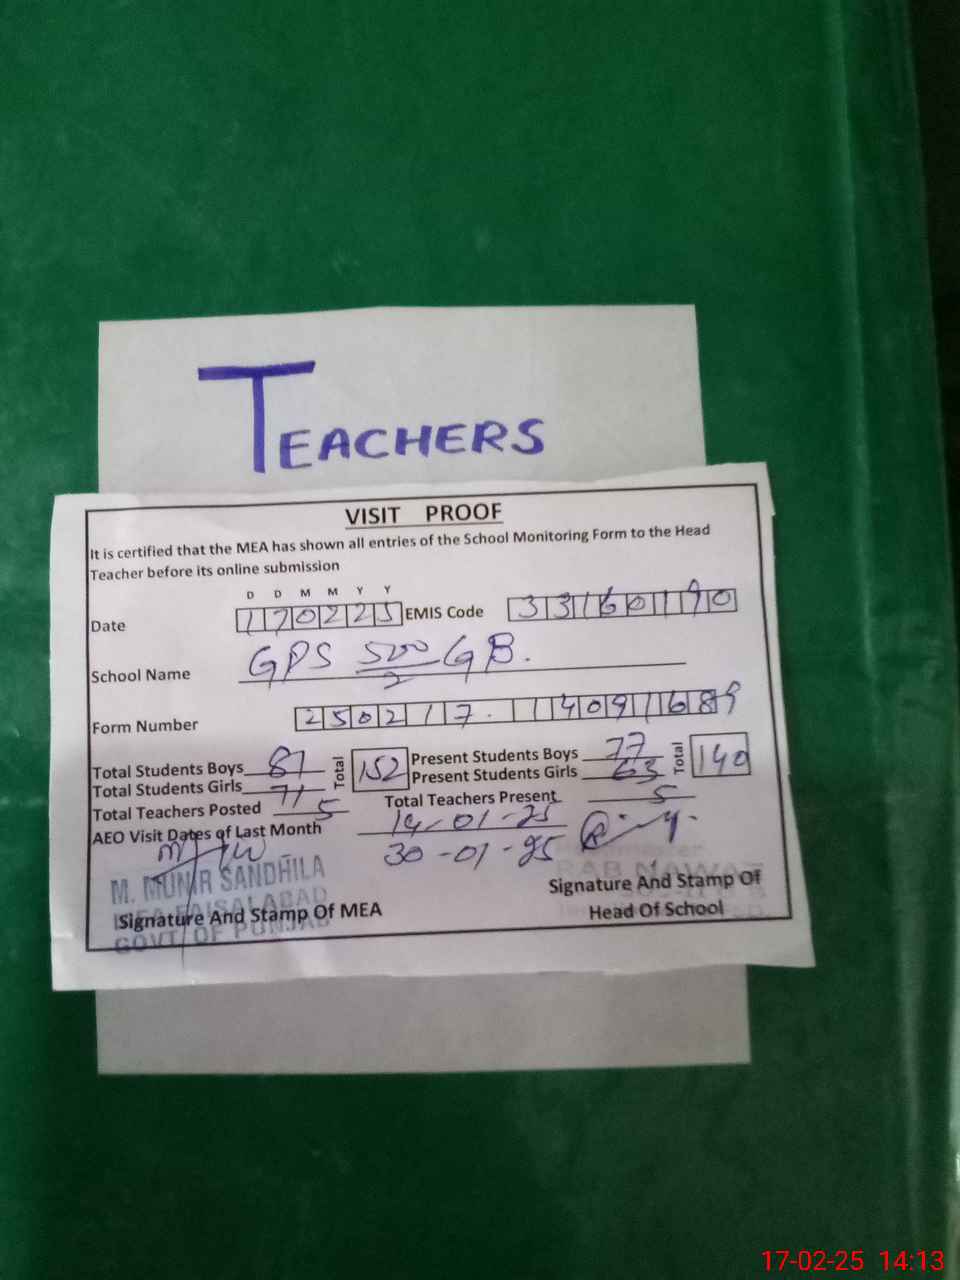 TEACHERS
VISIT PROOF
It is certified that the MEA has shown all entries of the School Monitoring Form to the Head
Teacher before its online submission
D D M M Y Y
Date 170225 EMIS Code 33160190
School Name GPS 500/2 GB.
Form Number 250217. 14091689
Total Students Boys 81 Total 152 Present Students Boys 77 Total 140
Total Students Girls 71 Present Students Girls 63
Total Teachers Posted 5 Total Teachers Present 5
AEO Visit Dates of Last Month 14-01-25
30-01-25
M. MUNIR SANDHILA
MEA FAISALABAD
GOVT OF PUNJAB
Signature And Stamp Of MEA
RAB NAWAZ
Signature And Stamp Of
Head Of School
17-02-25 14:13